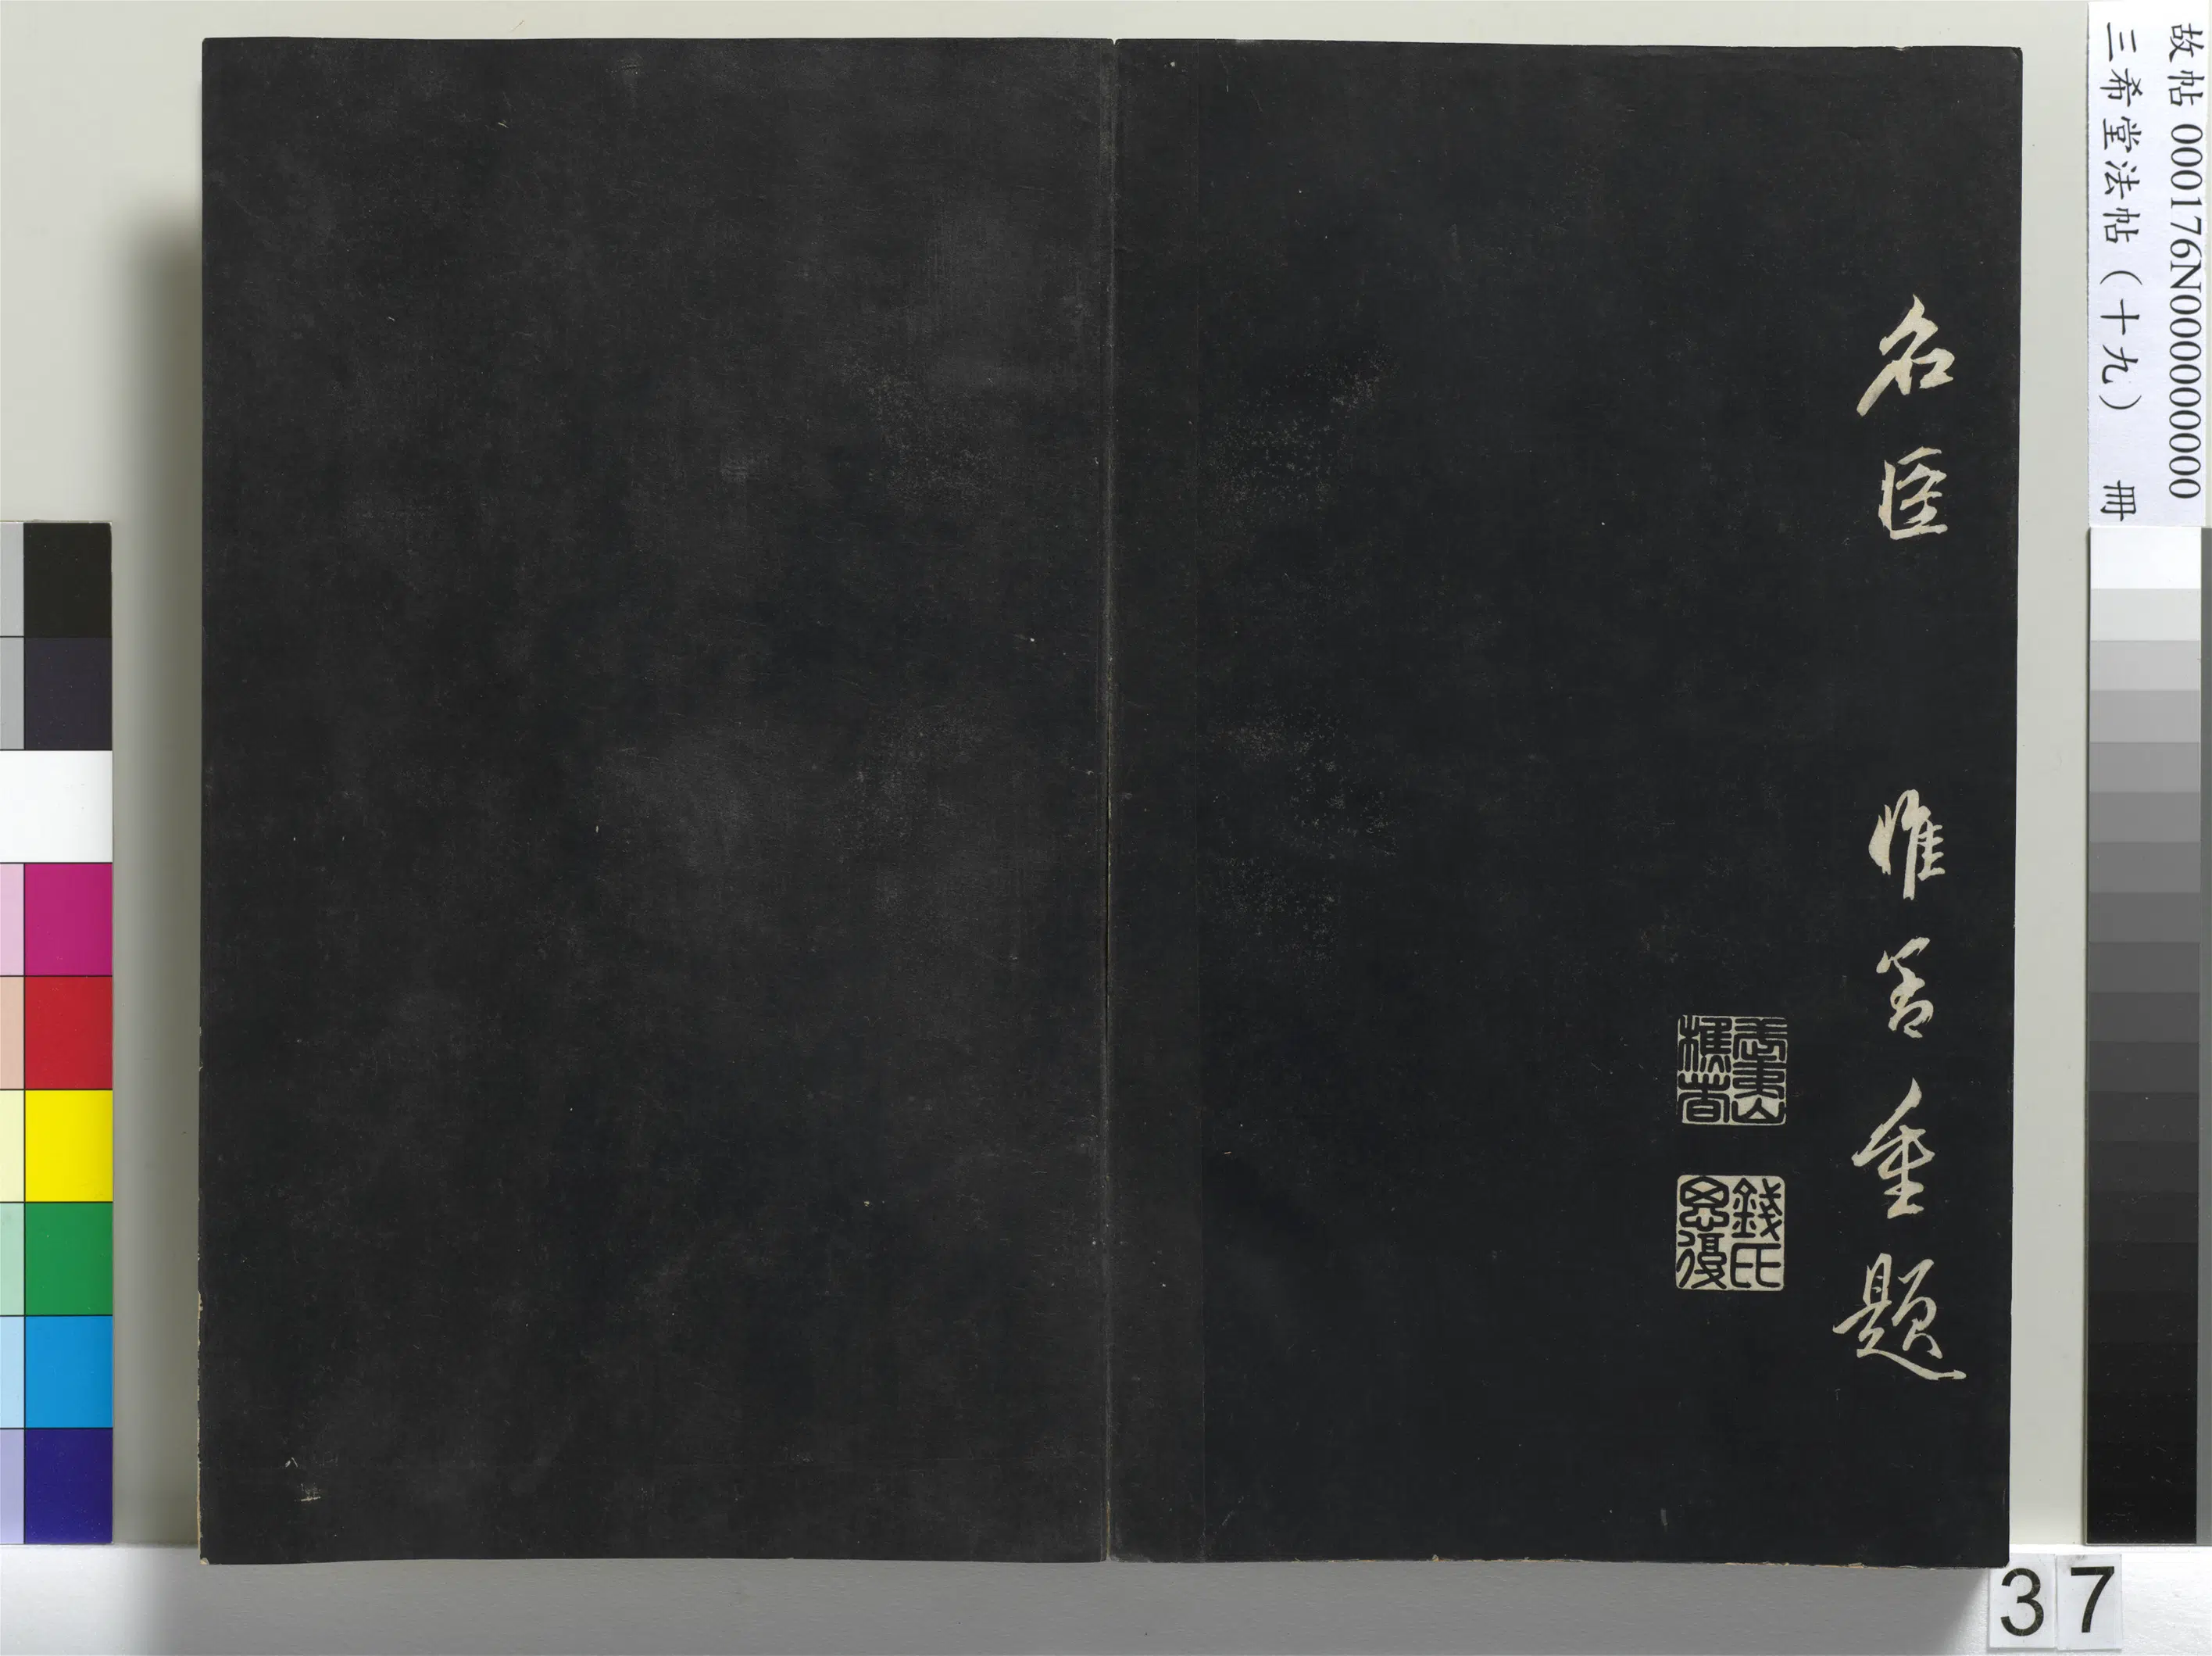 故帖 000176N000000000
三希堂法帖（十九） 冊
名臣 惟善重題
武夷山樵者
錢氏思復
37